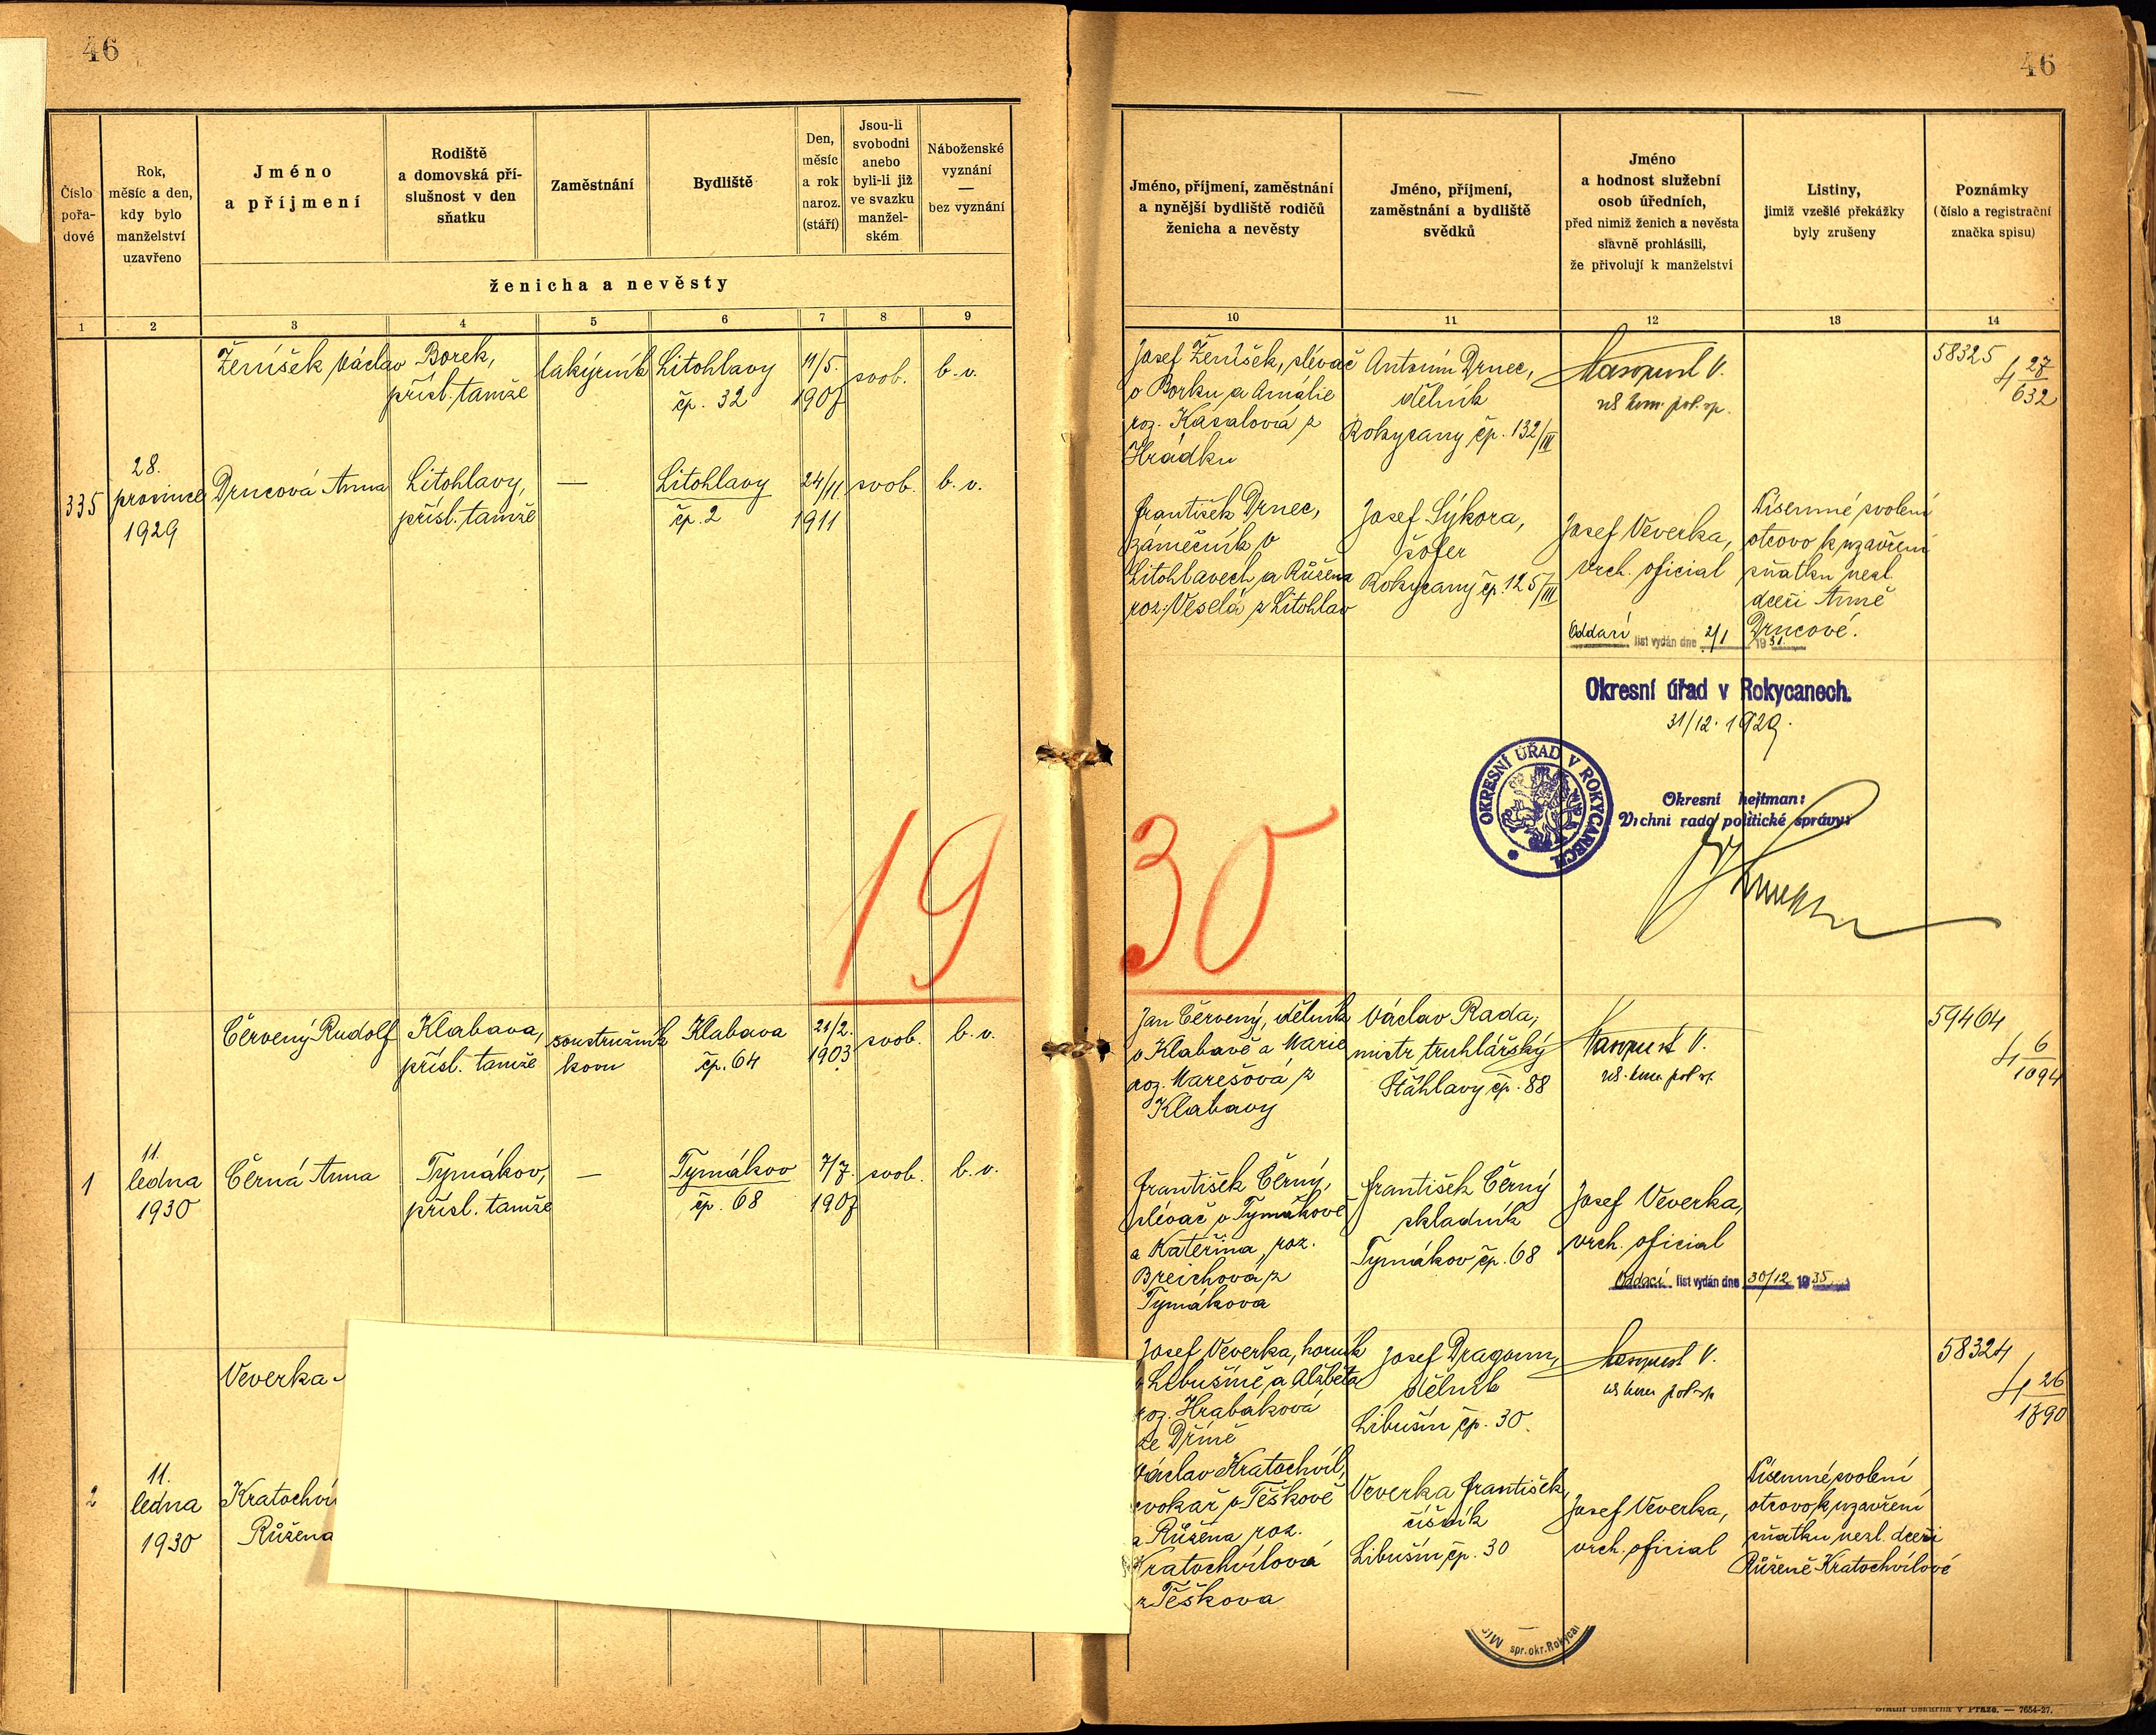 46
46
Číslo
pořa-
dové
Rok,
měsíc a den,
kdy bylo
manželství
uzavřeno
Jméno
a příjmení
Rodiště
a domovská pří-
slušnost v den
sňatku
Zaměstnání
Bydliště
Den,
měsíc
a rok
naroz.
(stáří)
Jsou-li
svobodni
anebo
byli-li již
ve svazku
manžel-
ském
Náboženské
vyznání
—
bez vyznání
ženicha a nevěsty
1 2 3 4 5 6 7 8 9
Jméno, příjmení, zaměstnání
a nynější bydliště rodičů
ženicha a nevěsty
Jméno, příjmení,
zaměstnání a bydliště
svědků
Jméno
a hodnost služební
osob úředních,
před nimiž ženich a nevěsta
slavně prohlásili,
že přivolují k manželství
Listiny,
jimiž vzešlé překážky
byly zrušeny
Poznámky
(číslo a registrační
značka spisu)
10 11 12 13 14
Ženíšek Václav
Borek,
přísl. tamže
lakýrník
Litohlavy
čp. 32
11/5.
1907
svob.
b. v.
335
28.
prosince
1929
Drncová Anna
Litohlavy,
přísl. tamže
—
Litohlavy
čp. 2
24/11.
1911
svob.
b. v.
Josef Ženíšek, slévač
v Borku a Amálie
roz. Kasalová z
Hrádku
Antonín Drnec,
dělník
Rokycany čp. 132/III
58325
4 27
632
František Drnec,
zámečník v
Litohlavech a Růžena
roz. Veselá z Litohlav
Josef Sýkora,
šofer
Rokycany čp. 125/III
Josef Veverka,
vrch. oficial
Písemné svolení
otcovo k uzavření
sňatku nezl.
dceři Anně
Drncové.
Oddací list vydán dne 2/1 1931
Okresní úřad v Rokycanech.
31/12. 1929.
OKRESNÍ ÚŘAD V ROKYCANECH
Okresní hejtman:
Vrchní rada politické správy:
19 30
Červený Rudolf
Klabava,
přísl. tamže
soustružník
kovu
Klabava
čp. 64
21/2.
1903
svob.
b. v.
1
11.
ledna
1930
Černá Anna
Tymákov,
přísl. tamže
—
Tymákov
čp. 68
7/7.
1907
svob.
b. v.
Jan Červený, dělník
v Klabavě a Marie
roz. Marešová z
Klabavy
Václav Rada,
mistr truhlářský
Štáhlavy čp. 88
59464
4 6
1094
František Černý,
slévač v Tymákově
a Kateřina, roz.
Breichová z
Tymákova
František Černý
skladník
Tymákov čp. 68
Josef Veverka,
vrch. oficial
Oddací list vydán dne 30/12 1935
Veverka
2
11.
ledna
1930
Kratochví
Růžena
Josef Veverka, horník
v Libušíně a Alžběta
roz. Hrabáková
ze Dříně
Josef Dragoun,
dělník
Libušín čp. 30.
58324
4 26
1790
Václav Kratochvíl,
cvokař v Těškově
a Růžena roz.
Kratochvílová
z Těškova
Veverka František,
číšník
Libušín čp. 30
Josef Veverka,
vrch. oficial
Písemné svolení
otcovo k uzavření
sňatku nezl. dceři
Růženě Kratochvílové
spr. okr. Rokycan
Státní tiskárna v Praze. — 7654-27.